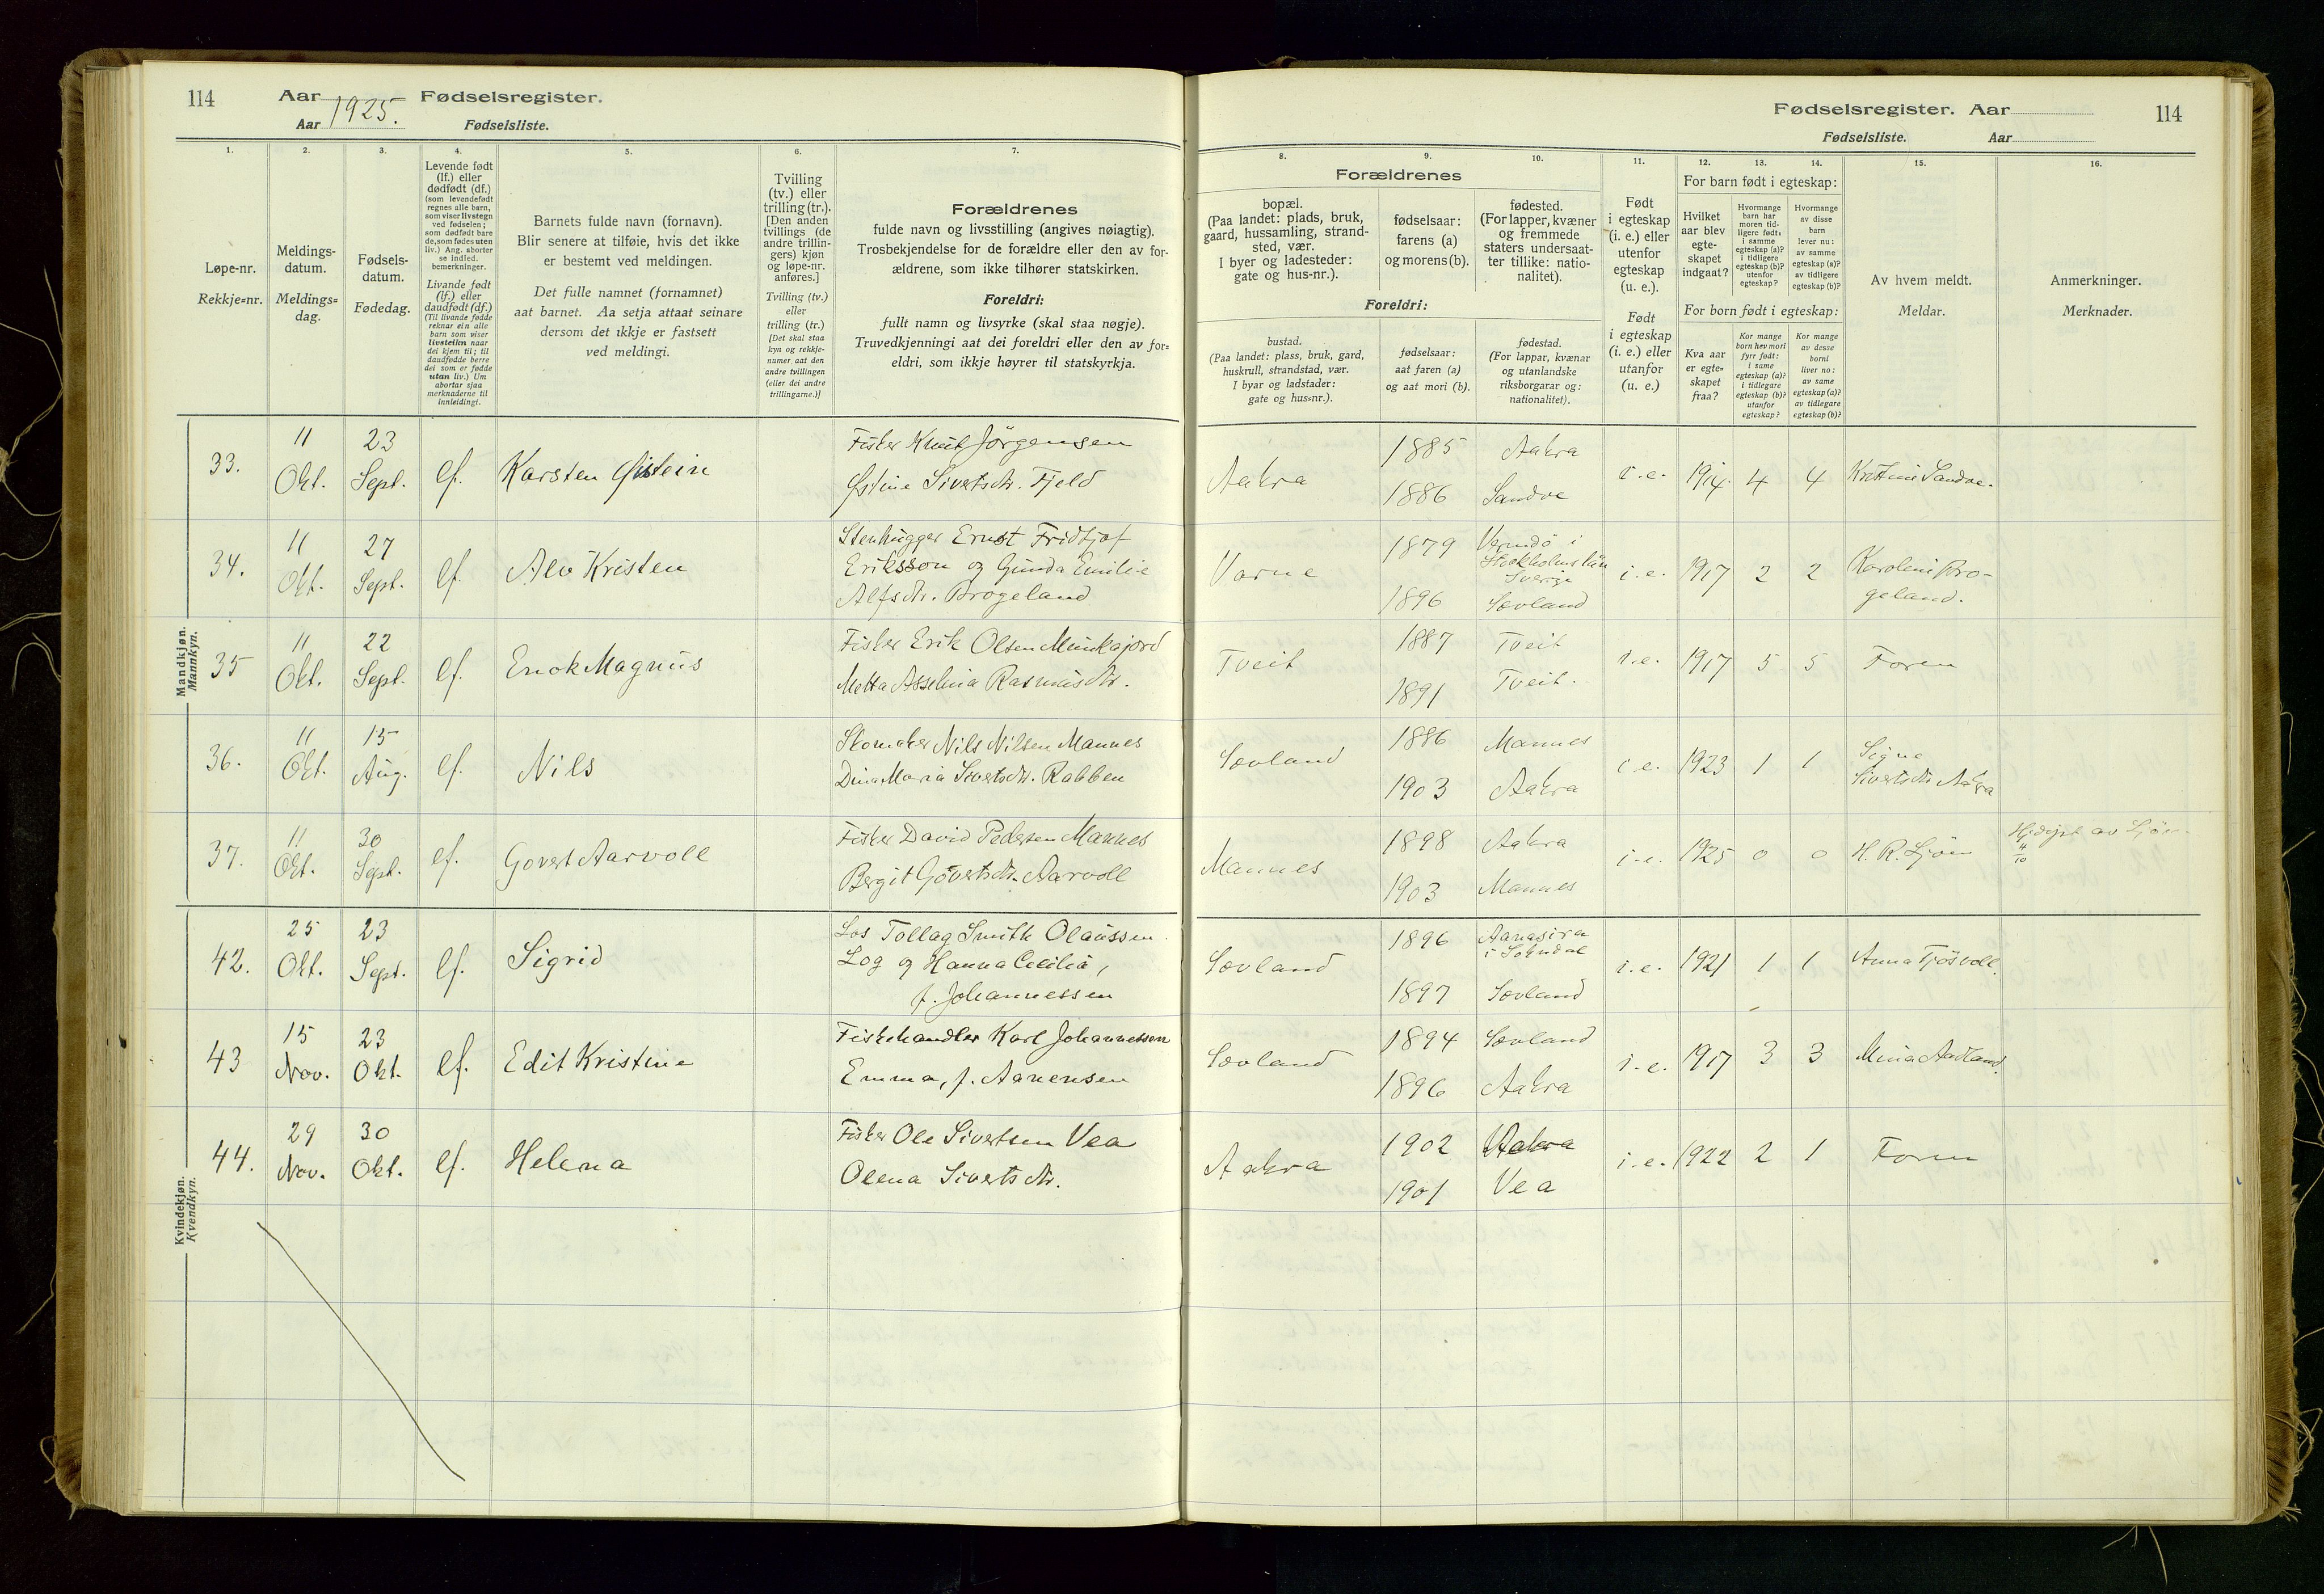 114 Aar 1925. Fødselsregister.
Aar Fødselsliste.
Fødselsregister. Aar 114
Fødselsliste. Aar
1. 2. 3. 4. 5. 6. 7.
Løpe-nr.
Rekkje=nr.
Meldings-
datum.
Meldings=
dag.
Fødsels-
datum.
Fødedag.
Levende født
(lf.) eller
dødfødt (df.)
(som levendefødt
regnes alle barn,
som viser livstegn
ved fødselen;
som dødfødt bare
de, som fødes uten
liv.) Ang. aborter
se indled.
bemerkninger.
Livande født
(lf.) eller
daudfødt (df.)
(Til livande fødde
reknar ein alle
barn som viser
livsteikn naar
dei kjem til; til
daudfødde berre
dei som er fødde
utan liv.) Um
abortar sjaa
merknaderne til
innleidingi.
Barnets fulde navn (fornavn).
Blir senere at tilføie, hvis det ikke
er bestemt ved meldingen.
Det fulle namnet (fornamnet)
aat barnet. Aa setja attaat seinare
dersom det ikkje er fastsett
ved meldingi.
Tvilling
(tv.) eller
trilling (tr.).
[Den anden
tvillings (de
andre trillin-
gers) kjøn
og løpe-nr.
anføres.]
Tvilling (tv.)
eller
trilling (tr.)
[Det skal staa
kyn og rekkje-
numer aat den
andre tvillingen
(eller dei andre
trillingarne.)]
Forældrenes
fulde navn og livsstilling (angives nøiagtig).
Trosbekjendelse for de forældre eller den av for-
ældrene, som ikke tilhører statskirken.
Foreldri:
fullt namn og livsyrke (skal staa nøgje).
Truvedkjenningi aat dei foreldri eller den av for=
eldri, som ikkje høyrer til statskyrkja.
8. 9. 10. 11. 12. 13. 14. 15. 16.
Forældrenes
bopæl.
(Paa landet: plads, bruk,
gaard, hussamling, strand-
sted, vær.
I byer og ladesteder:
gate og hus-nr.).
fødselsaar:
farens (a)
og morens (b).
fødested.
(For lapper, kvæner
og fremmede
staters undersaat-
ter tillike: natio-
nalitet).
Foreldri:
bustad.
(Paa landet: plass, bruk, gard,
huskrull, strandstad, vær.
I byar og ladstader:
gate og hus=nr.).
fødselsaar:
aat faren (a)
og aat mori (b).
fødestad.
(For lappar, kvænar
og utanlandske
riksborgarar og:
nationalitet).
Født
i egteskap
(i. e.) eller
utenfor
egteskap
(u. e.).
Født
i egteskap
(i. e.) eller
utanfor
(u. e.)
For barn født i egteskap:
Hvilket
aar blev
egte-
skapet
indgaat?
Hvormange
barn har
moren tid-
ligere født:
i samme
egteskap (a)?
i tidligere
egteskap (b)?
utenfor
egteskap?
Hvormange
av disse
barn
lever nu:
av samme
egteskap (a)?
av tidligere
egteskap (b)?
For born født i egteskap:
Kva aar
er egte=
skapet
fraa?
Kor mange
born hev mori
fyrr født:
i same
egteskap (a)?
i tidlegare
egteskap (b)?
utanfor
egteskap?
Kor mange
av desse
borni
liver no:
av same
egteskap (a)?
av tidlegare
egteskap (b)?
Av hvem meldt.
Meldar.
Anmerkninger.
Merknader.
Mandkjøn.
Mannkyn.
33. 11 Okt. 23 Sept. lf. Karsten Østein
Fisker Knut Jørgensen
Østine Sivertsdtr. Fjeld
Aakra 1885 Aakra
1886 Sandve
i.e. 1914. 4 4 Kristine Sandve.
34. 11 Okt. 27 Sept. lf. Alv Kristen
Stenhugger Ernst Fridtjof
Eriksson og Gunda Emilie
Alfsdtr. Brogeland
Varne 1879 Vermdö i
Stockholms län
Sverige
1896 Sævland
i.e. 1917 2 2 Karoline Bro-
geland.
35 11 Okt. 22 Sept. lf. Enok Magnus
Fisker Erik Olsen Munkajord
Metta Asselina Rasmusdtr.
Tveit 1887 Tveit
1891 Tveit.
i.e. 1917 5 5 Foren
36. 11 Okt. 15 Aug. lf. Nils
Skomaker Nils Nilsen Mannes
Dina Maria Sivertsdtr. Rabben
Sævland 1886 Mannes
1903 Aakra
i.e. 1923 1 1 Signe
Sivertsdtr Aakra
37. 11 Okt. 30 Sept. lf. Govert Aarvoll
Fisker David Pedersen Mannes
Bergit Govertsdtr. Aarvoll
Mannes 1898 Aakra
1903 Mannes
i.e. 1925 0 0 H. R. Ljöen Hjdøpt av Ljöen
4/10
Kvindekjøn.
Kvendkyn.
42. 25 Okt. 23 Sept. lf. Sigrid
Los Tollag Smith Olaussen
Log og Hanna Cecilia,
f. Johannessen
Sævland 1896 Aanasira
i Sokndal
1897 Sævland
i.e. 1921 1 1 Anna Tjösvoll.
43 15 Nov. 23 Okt. lf. Edit Kristine
Fiskehandler Karl Johannessen
Emma, f. Aanensen
Sævland 1894 Sævland
1896 Aakra
i.e. 1917 3 3 Mina Aadland.
44. 29 Nov. 30 Okt. lf. Helena
Fisker Ole Sivertsen Vea
Olena Sivertsdtr.
Aakra 1902 Aakra
1901 Vea
i.e. 1922 2 1 Foren